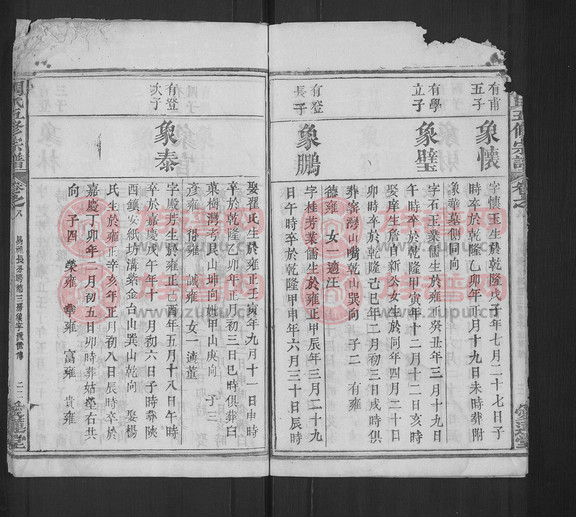 有甫
五子
象懷
字懷玉生於乾隆戊子年七月二十七日子
時卒於乾隆乙卯年正月十九日未時葬附
象華墓側同向
有學
立子
象璧
字石玉業儒生於雍正癸丑年三月十九日
午時卒於乾隆壬寅年十二月十二日亥時
娶庠生詹時新公女生於同年四月二十二
卯時卒於乾隆己巳年二月初三日戌時俱
葬窑灣山嘴乾山巽向 子二 有雍
德雍 女一適汪
有登
長子
象鵬
字桂芳業儒生於雍正甲辰年三月二十九
日午時卒於乾隆甲申年六月三十日辰時
娶翟氏生於雍正壬寅年九月十一日申時
卒於乾隆乙卯年正月初三日巳時俱葬白
菓樹灣考艮山坤向妣甲山庚向 子三
彥雍 得雍 誠雍 女一適黃
有登
次子
象泰
字殿芳生於雍正己酉年五月十八日午時
卒於嘉慶戊午年十一月初六日子時葬陝
西鎮安紙坊溝紫金台山巽山乾向 娶楊
氏生於雍正辛亥年正月初八日辰時卒於
嘉慶丁卯年二月初五日卯時葬姑塋右共
向 子四 榮雍 華雍 富雍 貴雍
周氏五修宗譜
卷之八
愛蓮堂